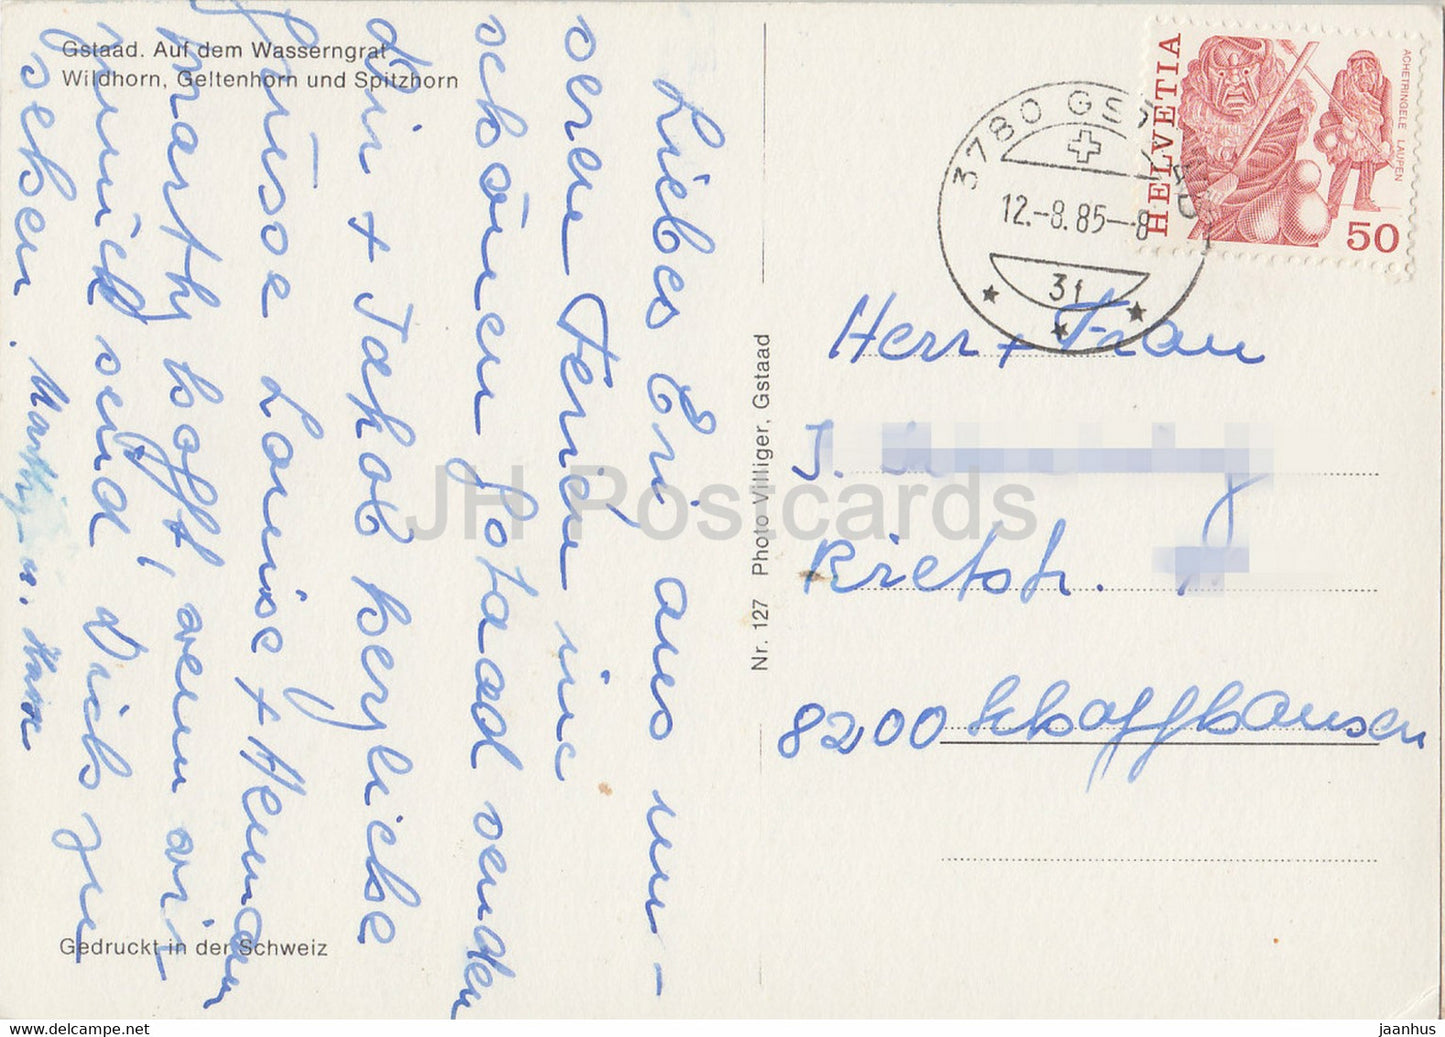 Gstaad. Auf dem Wasserngrat
Wildhorn, Geltenhorn und Spitzhorn
Liebes Eri, aus un-
seren Ferien im
schönen Gstaad senden
dir + Jakob herzliche
Grüsse Louise + Hermann
Marthy hofft, wenn wir
zurück sind, Dich zu
sehen. Marthy u. Hans
Gedruckt in der Schweiz
Nr. 127 Photo Villiger, Gstaad
3780 GSTAAD
12.-8.85--8
3f
HELVETIA
ACHETRINGELE LAUPEN
50
Herr + Frau
J.
Rietstr.
8200 Schaffhausen
JH Postcards
www.delcampe.net
jaanhus